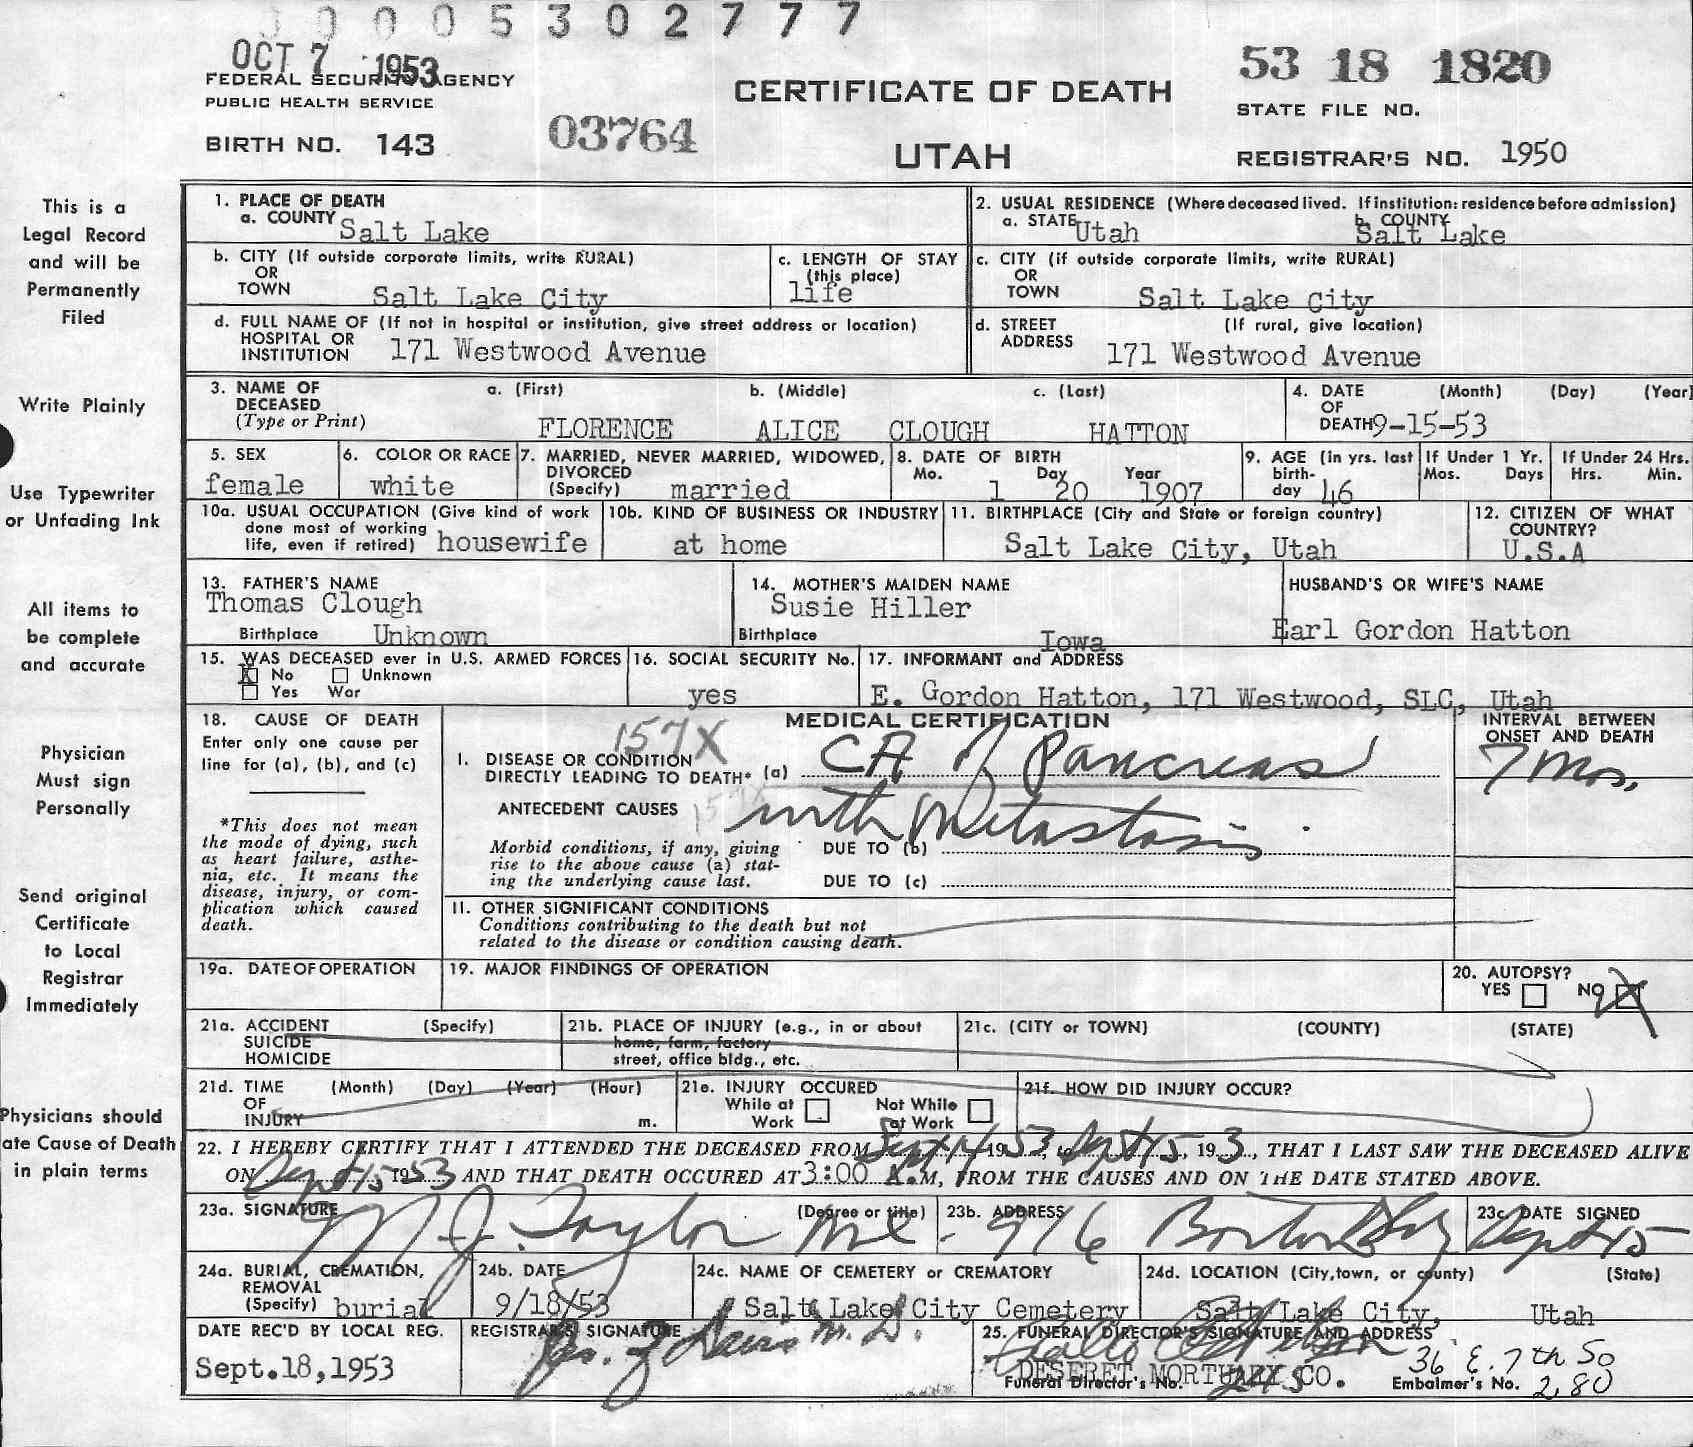 0005302777
OCT 7 1953
FEDERAL SECURITY AGENCY
PUBLIC HEALTH SERVICE
BIRTH NO. 143
03764
CERTIFICATE OF DEATH
UTAH
53 18 1820
STATE FILE NO.
REGISTRAR'S NO. 1950
This is a
Legal Record
and will be
Permanently
Filed
Write Plainly
Use Typewriter
or Unfading Ink
All items to
be complete
and accurate
Physician
Must sign
Personally
Send original
Certificate
to Local
Registrar
Immediately
Physicians should
ate Cause of Death
in plain terms
1. PLACE OF DEATH
a. COUNTY Salt Lake
2. USUAL RESIDENCE (Where deceased lived. If institution: residence before admission)
a. STATE Utah b. COUNTY Salt Lake
b. CITY (If outside corporate limits, write RURAL)
OR
TOWN Salt Lake City
c. LENGTH OF STAY
(this place)
life
c. CITY (if outside corporate limits, write RURAL)
OR
TOWN Salt Lake City
d. FULL NAME OF (If not in hospital or institution, give street address or location)
HOSPITAL OR
INSTITUTION 171 Westwood Avenue
d. STREET (If rural, give location)
ADDRESS 171 Westwood Avenue
3. NAME OF a. (First) b. (Middle) c. (Last)
DECEASED
(Type or Print) FLORENCE ALICE CLOUGH HATTON
4. DATE (Month) (Day) (Year)
OF
DEATH 9-15-53
5. SEX
female
6. COLOR OR RACE
white
7. MARRIED, NEVER MARRIED, WIDOWED,
DIVORCED
(Specify) married
8. DATE OF BIRTH
Mo. Day Year
1 20 1907
9. AGE (In yrs. last
birth-
day 46
If Under 1 Yr.
Mos. Days
If Under 24 Hrs.
Hrs. Min.
10a. USUAL OCCUPATION (Give kind of work
done most of working
life, even if retired) housewife
10b. KIND OF BUSINESS OR INDUSTRY
at home
11. BIRTHPLACE (City and State or foreign country)
Salt Lake City, Utah
12. CITIZEN OF WHAT
COUNTRY?
U.S.A
13. FATHER'S NAME
Thomas Clough
Birthplace Unknown
14. MOTHER'S MAIDEN NAME
Susie Hiller
Birthplace Iowa
HUSBAND'S OR WIFE'S NAME
Earl Gordon Hatton
15. WAS DECEASED ever in U.S. ARMED FORCES
X No Unknown
Yes War
16. SOCIAL SECURITY No.
yes
17. INFORMANT and ADDRESS
E. Gordon Hatton, 171 Westwood, SLC, Utah
18. CAUSE OF DEATH
Enter only one cause per
line for (a), (b), and (c)
*This does not mean
the mode of dying, such
as heart failure, asthe-
nia, etc. It means the
disease, injury, or com-
plication which caused
death.
MEDICAL CERTIFICATION
157X
I. DISEASE OR CONDITION
DIRECTLY LEADING TO DEATH* (a) CA of Pancreas
157X
ANTECEDENT CAUSES with Metastasis
Morbid conditions, if any, giving
rise to the above cause (a) stat-
ing the underlying cause last.
DUE TO (b)
DUE TO (c)
INTERVAL BETWEEN
ONSET AND DEATH
7 Mos.
II. OTHER SIGNIFICANT CONDITIONS
Conditions contributing to the death but not
related to the disease or condition causing death.
19a. DATE OF OPERATION
19. MAJOR FINDINGS OF OPERATION
20. AUTOPSY?
YES NO X
21a. ACCIDENT (Specify)
SUICIDE
HOMICIDE
21b. PLACE OF INJURY (e.g., in or about
home, farm, factory
street, office bldg., etc.
21c. (CITY or TOWN) (COUNTY) (STATE)
21d. TIME (Month) (Day) (Year) (Hour)
OF
INJURY m.
21e. INJURY OCCURED
While at Not While
Work at Work
21f. HOW DID INJURY OCCUR?
22. I HEREBY CERTIFY THAT I ATTENDED THE DECEASED FROM Sept 14 1953, to Sept 15, 1953, THAT I LAST SAW THE DECEASED ALIVE
ON Sept 15 1953 AND THAT DEATH OCCURED AT 3:00 A.M, FROM THE CAUSES AND ON THE DATE STATED ABOVE.
23a. SIGNATURE (Degree or title)
N. J. Taylor MD
23b. ADDRESS
916 Boston Bldg
23c. DATE SIGNED
Sept 15
24a. BURIAL, CREMATION,
REMOVAL
(Specify) burial
24b. DATE
9/18/53
24c. NAME OF CEMETERY or CREMATORY
Salt Lake City Cemetery
24d. LOCATION (City, town, or county) (State)
Salt Lake City, Utah
DATE REC'D BY LOCAL REG.
Sept.18,1953
REGISTRAR'S SIGNATURE
M. D.
25. FUNERAL DIRECTOR'S SIGNATURE AND ADDRESS
DESERET MORTUARY CO. 36 E. 7th So
Funeral Director's No. 245 Embalmer's No. 280